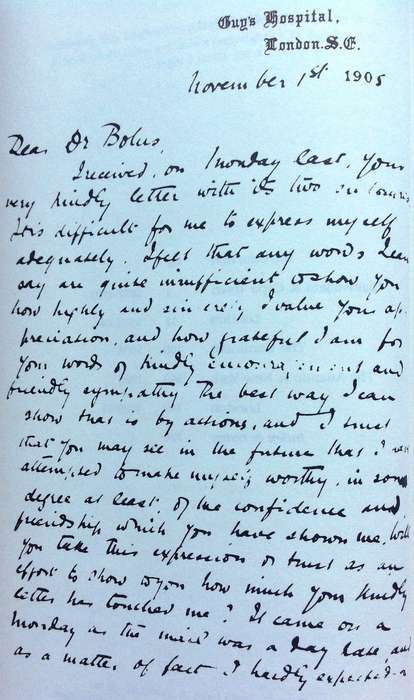 Guy's Hospital,
London. S.E.
November 1st 1905
Dear Dr Bolus,
I received, on Monday last, your
very kindly letter with its two
It is difficult for me to express myself
adequately. I feel that any words I can
say are quite insufficient to show you
how highly and sincerely I value your ap
preciation, and how grateful I am for
your words of kindly encouragement and
friendly sympathy The best way I can
show that is by actions, and I trust
that you may see in the future that I
attempted to make myself worthy, in some
degree at least, of the confidence and
friendship which you have shown me. Will
you take this expression of trust as an
effort to show to you how much your kindly
letter has touched me? It came on a
Monday as the mail was a day late, and
as a matter of fact I hardly expected